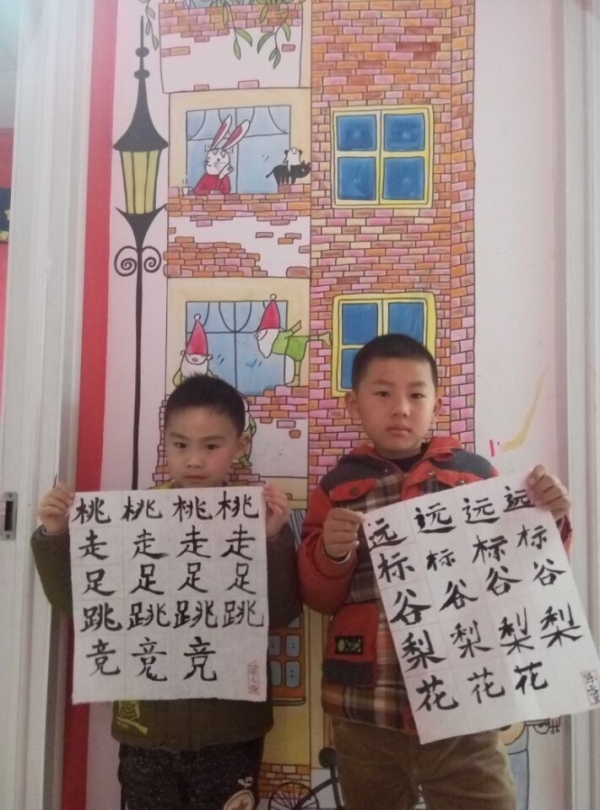 桃桃桃桃
走走走走
足足足足
跳跳跳跳
竞竞竞
远远远远
标标标标
谷谷谷谷
梨梨梨梨
花花花